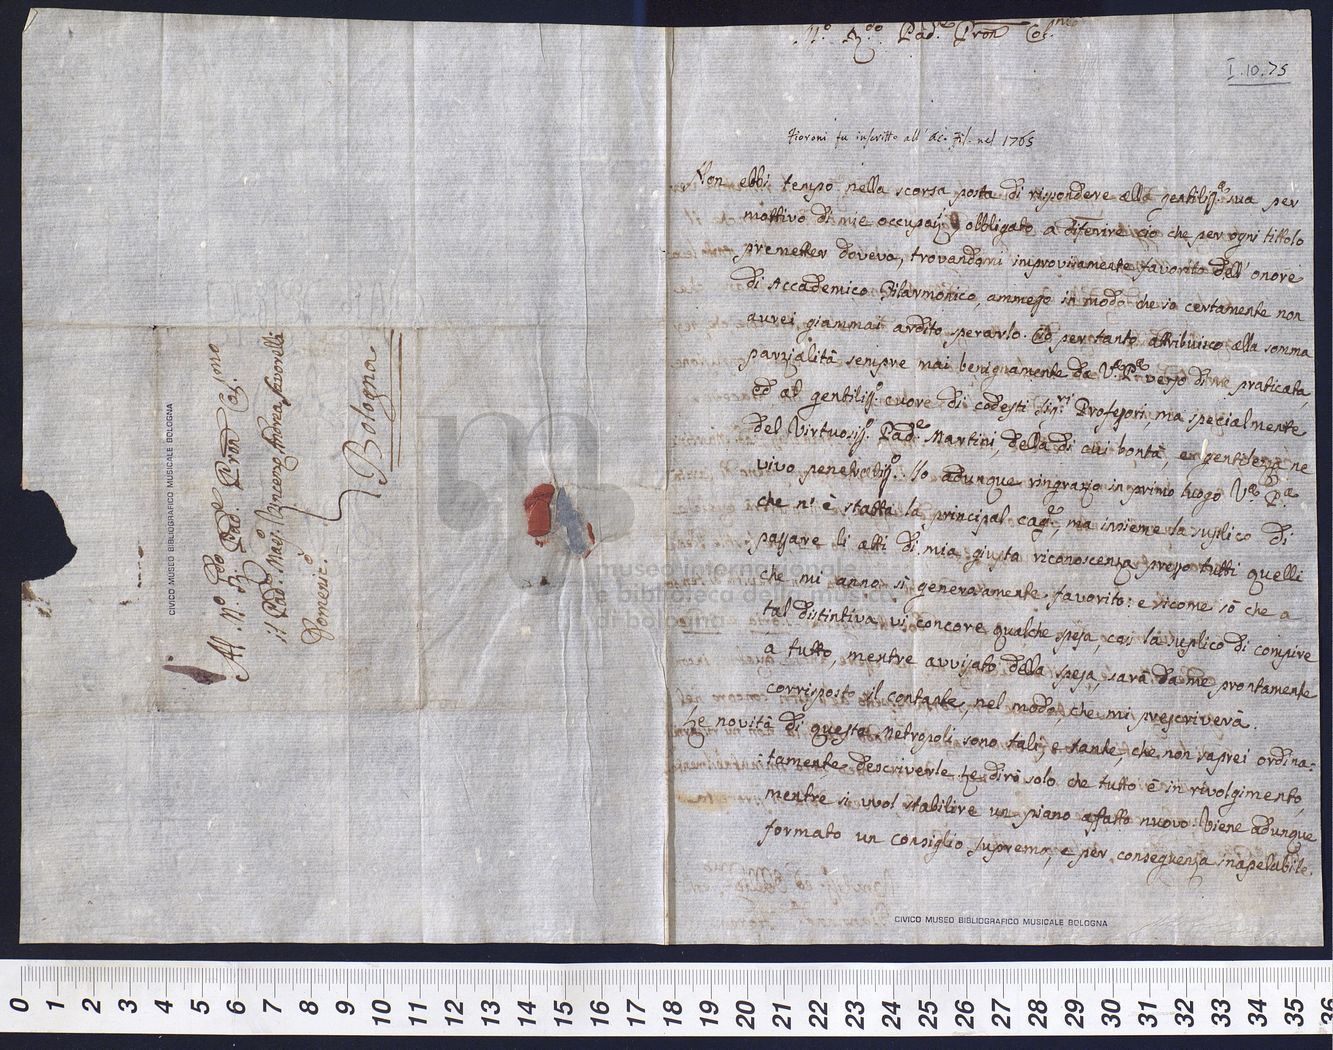 M.º R.do Pad.e Pron Col.mo
I.10.75
Fioroni fu inscritto all' Ac. Fil. nel 1765
Non ebbi tempo nella scorsa posta di rispondere alla gentiliss.a sua per
mottivo di mie occupaz.i obbligato a differire ciò che per ogni tittolo
premetter doveva, trovandomi improvisamente favorito dell'onore
di Accademico Filarmonico, ammesso in modo che io certamente non
avrei giammai ardito sperarlo. Ciò pertanto attribuisco alla somma
parzialità sempre mai benignamente da V.a P.a verso di me praticata,
ed al gentiliss.o cuore di codesti Sig.ri Professori, ma specialmente
del Virtuosiss.o Pad.e Martini, della di cui bontà, e gentilezza ne
vivo penetratiss.o Io adunque ringrazio in primo luogo V.a P.a
che n'è statta la principal cag.e, ma insieme la suplico di
passare li atti di mia giusta riconoscenza presso tutti quelli
che mi anno sì generosamente favorito: e sicome sò che a
tal distintiva vi concore qualche spesa, così la suplico di compire
a tutto, mentre avvisato della spesa, sarà da me prontamente
corrisposto il contante, nel modo, che mi prescriverà.
Le novità di questa Metropoli sono tali, e tante, che non saprei ordina=
tamente descriverle. Le dirò solo che tutto è in rivolgimento,
mentre si vuol stabilire un piano affatto nuovo. Viene adunque
formato un Consiglio supremo, e per conseguenza inapelabile.
Al M.º R.do Pad.e Pron Col.mo
il Pad.e Maes.o Vincenzo Andrea Savorelli
Domenic.o
Bologna
CIVICO MUSEO BIBLIOGRAFICO MUSICALE BOLOGNA
CIVICO MUSEO BIBLIOGRAFICO MUSICALE BOLOGNA
museo internazionale
e biblioteca della musica
di bologna
0 1 2 3 4 5 6 7 8 9 10 11 12 13 14 15 16 17 18 19 20 21 22 23 24 25 26 27 28 29 30 31 32 33 34 35 36